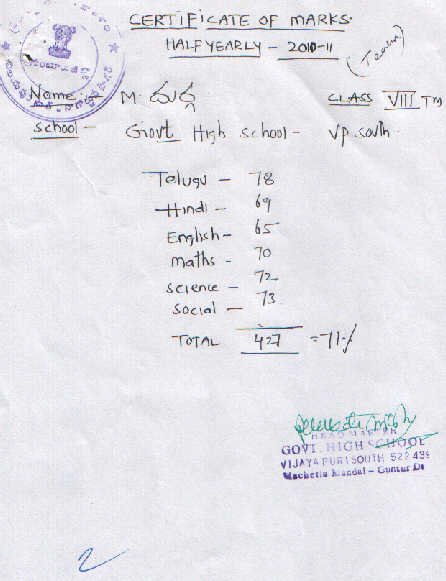 CERTIFICATE OF MARKS
HALF YEARLY - 2010-11
Name:- M. దుర్గ CLASS VIII TM
School - Govt High school - vp.south.
Telugu - 78
Hindi - 69
English - 65
maths - 70
science - 72
social - 73
TOTAL 427 = 71%
HEAD MASTER
GOVT. HIGH SCHOOL
VIJAYAPURI SOUTH 522 439
Macherla Mandal - Guntur Dt
2